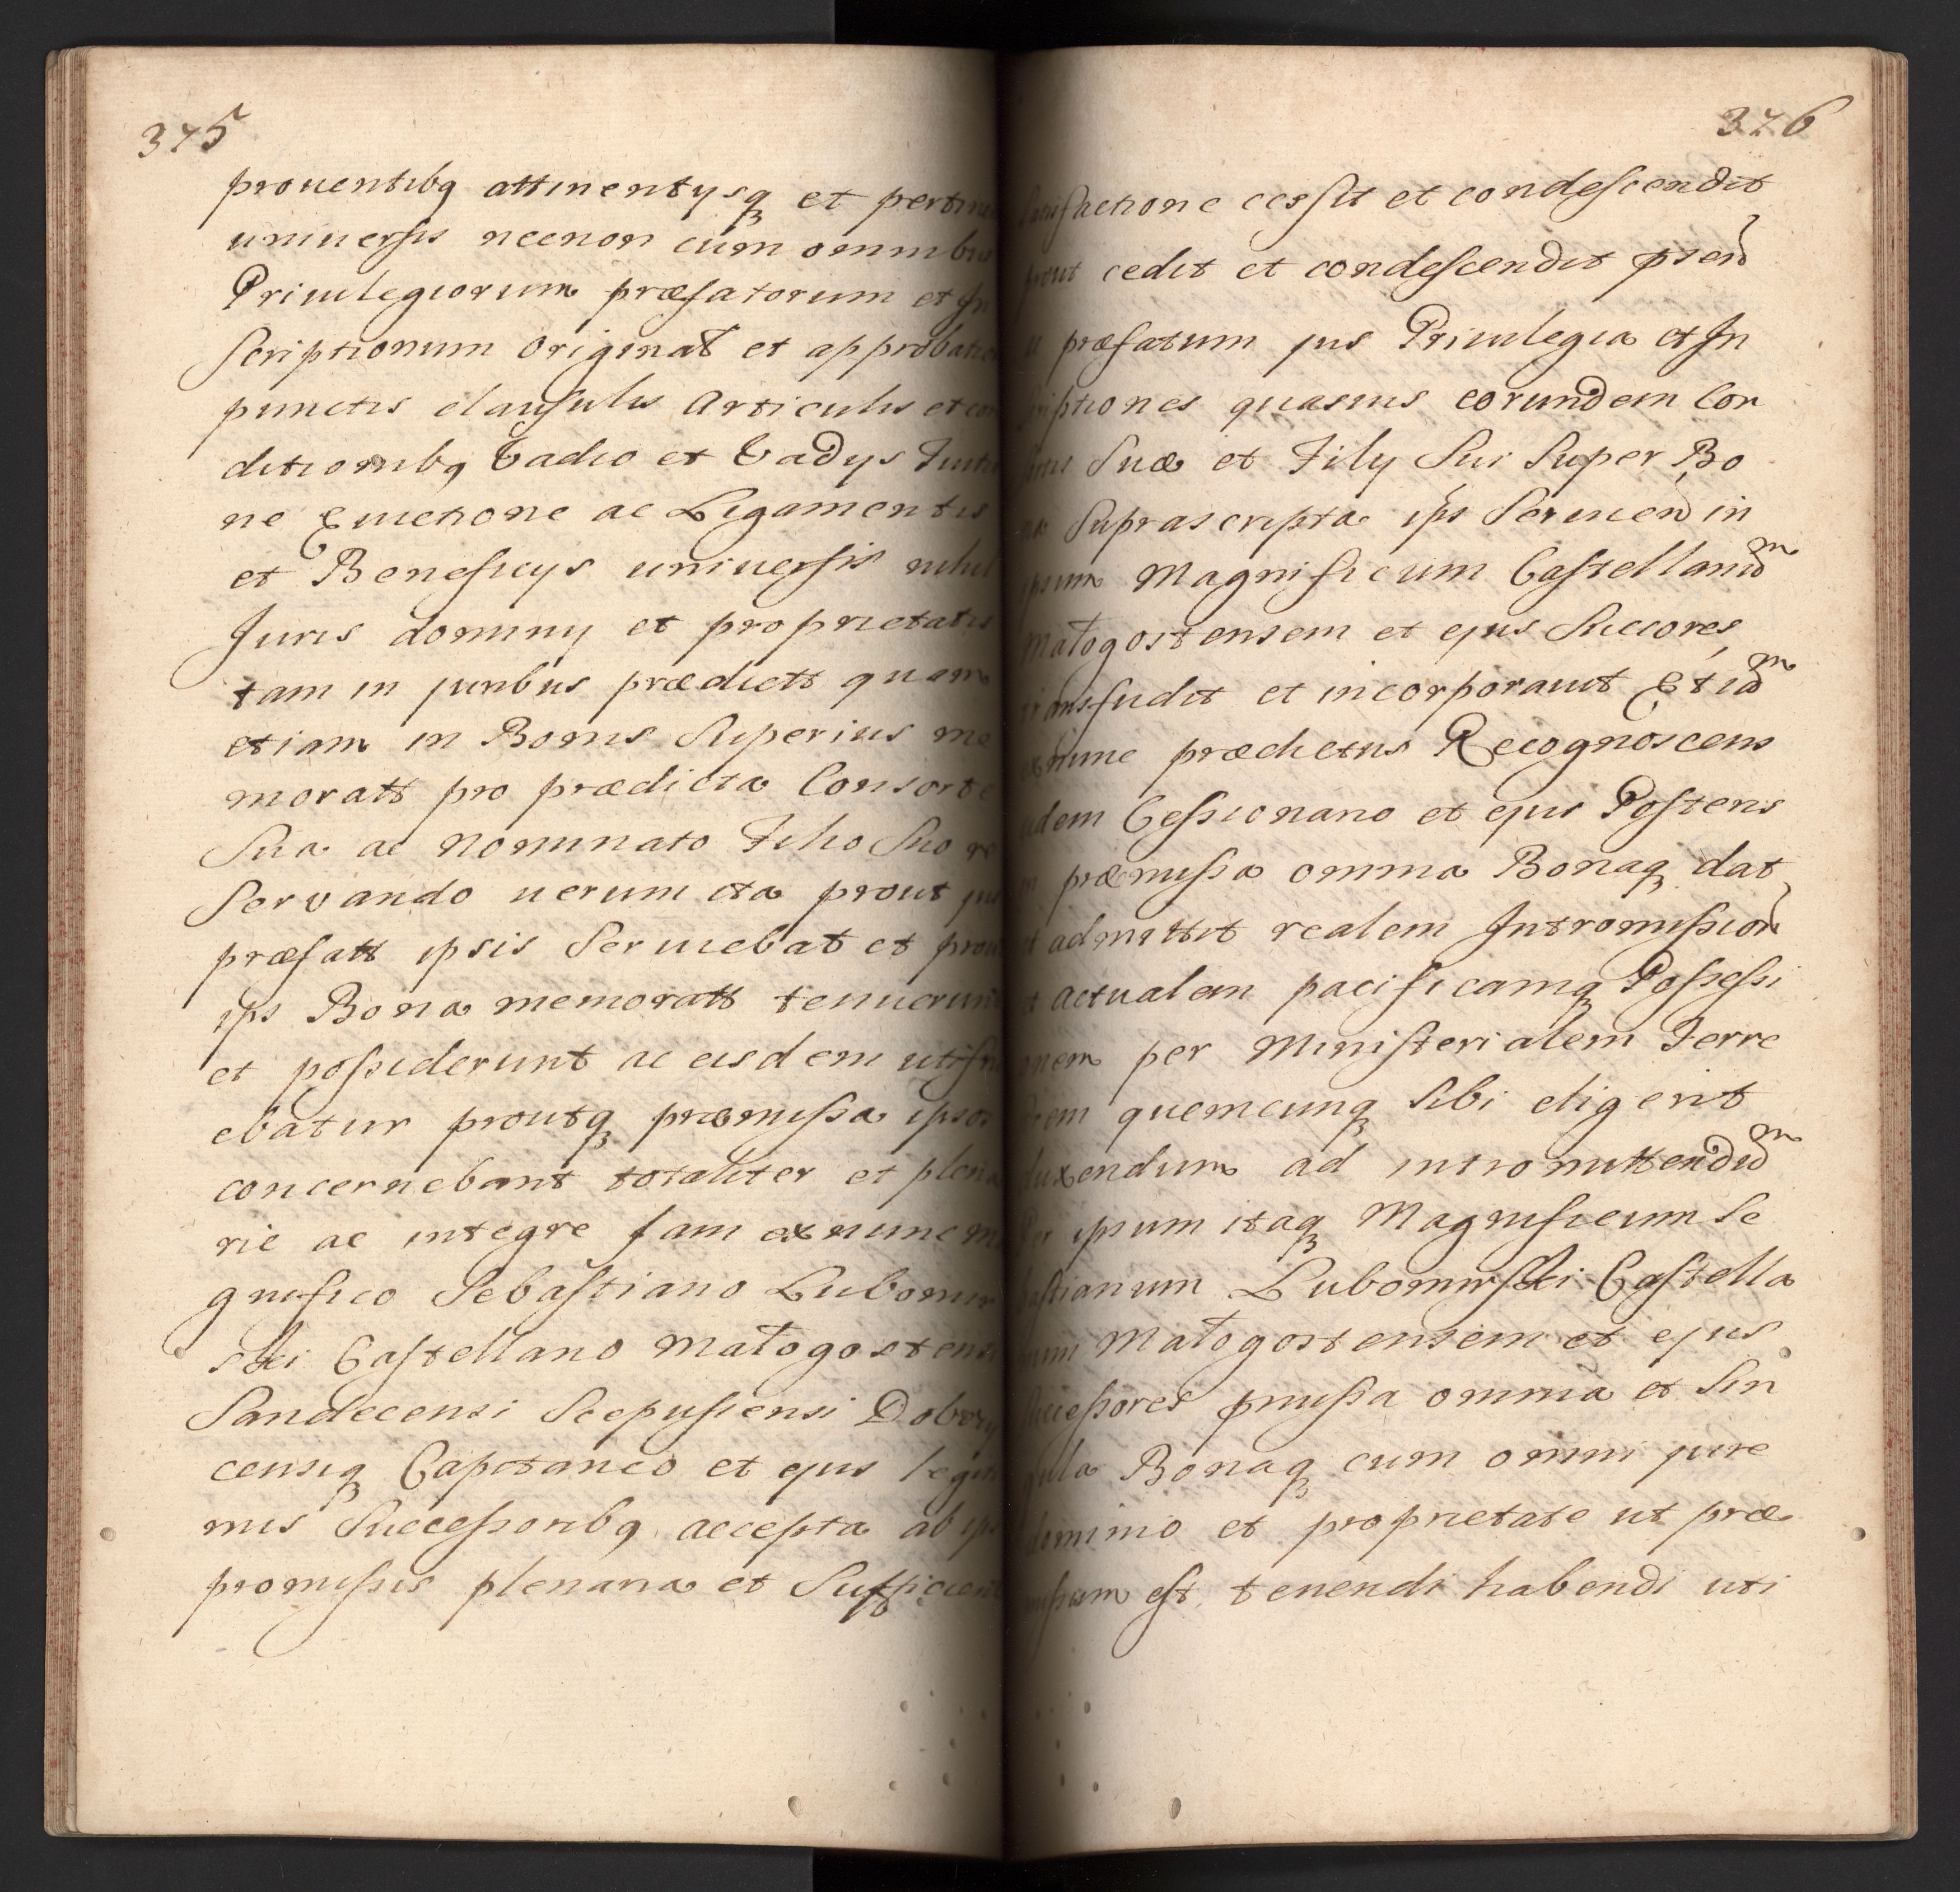 375
prouentibq attinentysq et pertine
uniuersis necnon cum omnibus
Priuilegiorum præfatorum et In
scriptionum original et approbatio
punctis clausulis Articulis et con
ditionibq Vadio et Vadys Tuitio
ne Euictione ac Ligamentis
et Beneficys uniuersis nihil
Juris dominy et proprietatis
tam in juribus prædictt quam
etiam in Bonis Superius me
moratt pro prædicta Consorte
Sua ac nominato Filio Suo re
Servando uerum ita prout jus
præfatt ipsis Seruiebat et prout
ips Bona memoratt tenuerunt
et possiderunt ac eisdem utifru
ebatur proutq præmissa ipsos
concernebant totaliter et plena
rie ac integre jam exnunc Ma
gnifico Sebastiano Lubomir
ski Castellano Małogostensi
Sandecensi Scepusiensi Dobczy
censiq Capitaneo et ejus legiti
mis Successoribq accepta ab ips
promissis plenaria et Sufficienti
376
satisfactione cessit et condescendit
prout cedit et condescendit pnd
præfatum jus Priuilegia et In
scriptiones quasuis eorundem Con
sortis Suæ et Fily Sui Super Bo
na Suprascripta ips Seruien in
ipsum Magnificum Castellanum
Małogostensem et ejus Succores
transfudit et incorporauit Et idm
exnunc prædictus Recognoscens
eidem Cessionario et ejus Posteris
in præmissa omnia Bonaq dat
et admittit realem Intromission
et actualem pacificamq Possessi
onem per Ministerialem Terre
strem quemcunq Sibi eligerit
ducendum ad intromittendum
Per ipsum itaq Magnificum Se
bastianum Lubomirski Castella
num Małogostensem et ejus
Successores pmissa omnia et Sin
gula Bonaq cum omni jure
dominio et proprietate ut præ
missum est tenendi habendi uti